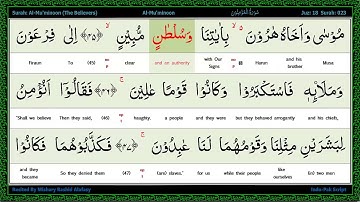 Surah: Al-Mu'minoon (The Believers) Al-Mu'minoon سُوْرَةُ الْمُؤْمِنُوْنَ Juz: 18 Surah: 023
مُوْسٰى وَاَخَاهُ هٰرُوْنَ ۙ بِاٰيٰتِنَا وَسُلْطٰنٍ مُّبِيْنٍ ۙ ﴿۴۵﴾ اِلٰى فِرْعَوْنَ
Firaun To (45) clear and an authority with Our Signs Harun and his brother Musa
وَمَلَا۟ئِهٖ فَاسْتَكْبَرُوْا وَكَانُوْا قَوْمًا عٰلِيْنَ ۚ ﴿۴۶﴾ فَقَالُوْۤا اَنُؤْمِنُ
"Shall we believe Then they said, (46) haughty. a people and they were but they behaved arrogantly and his chiefs,
لِبَشَرَيْنِ مِثْلِنَا وَقَوْمُهُمَا لَنَا عٰبِدُوْنَ ۚ ﴿۴۷﴾ فَكَذَّبُوْهُمَا فَكَانُوْا
and they became So they denied them (47) (are) slaves." for us while their people like ourselves (in) two men
Recited By Mishary Rashid Alafasy Indo-Pak Script